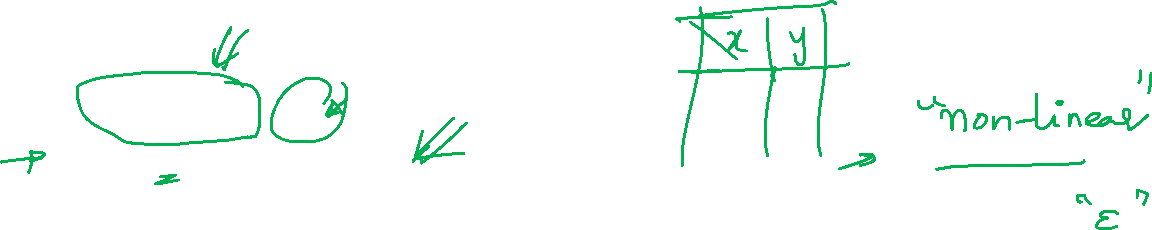 x y
"non-linear"
"ε"